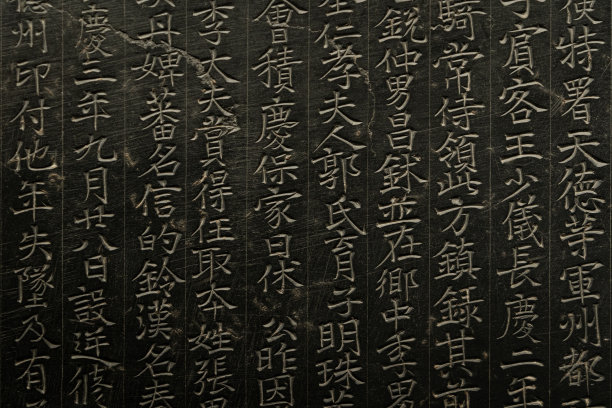 使特署天德等軍州都
子賓客王少儀長慶二年
騎常侍領此方鎮錄其前
銳仲男昌銶並在鄉中季男
仁孝夫人郭氏育子明珠
會積慶保家日休 公昨因
李大夫賞得任取本姓張男
丹婢蕃名信的鈴漢名春
慶三年九月廿八日設迎修
州印付他年失墜及有